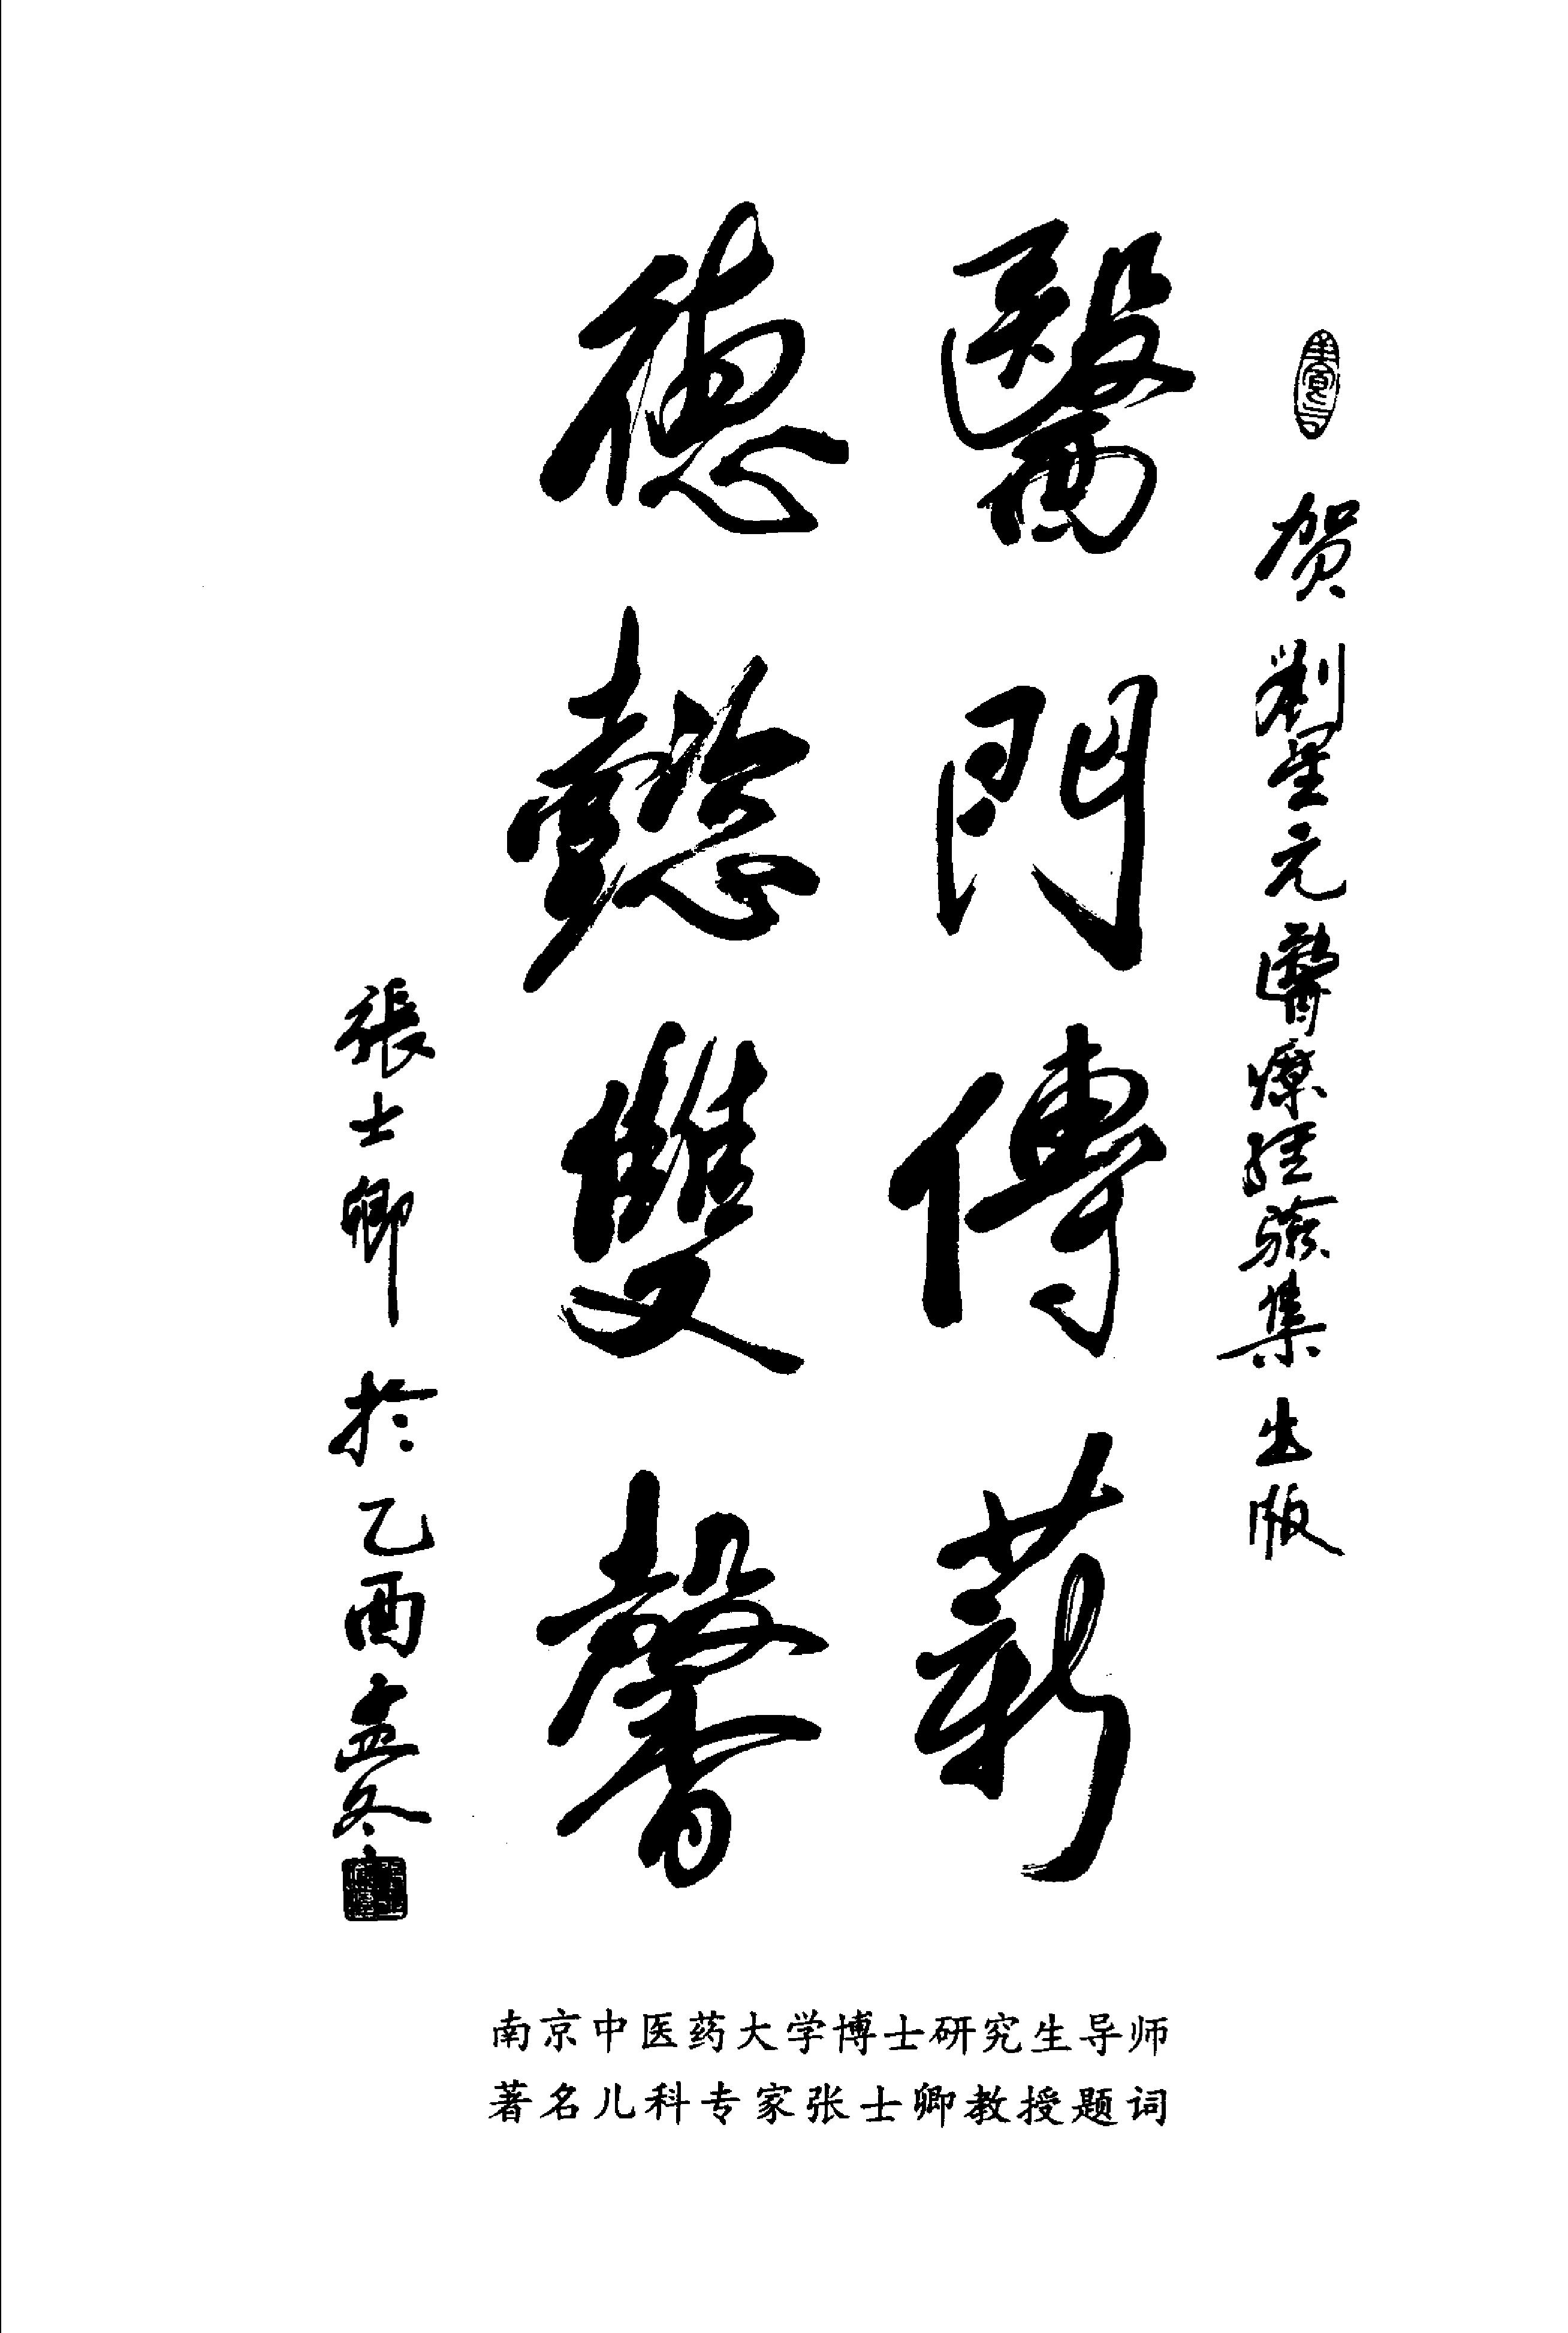 贺劉星元醫療经验集出版
醫門傳薪
德懿雙馨
張士卿於乙酉孟冬
南京中医药大学博士研究生导师
著名儿科专家张士卿教授题词